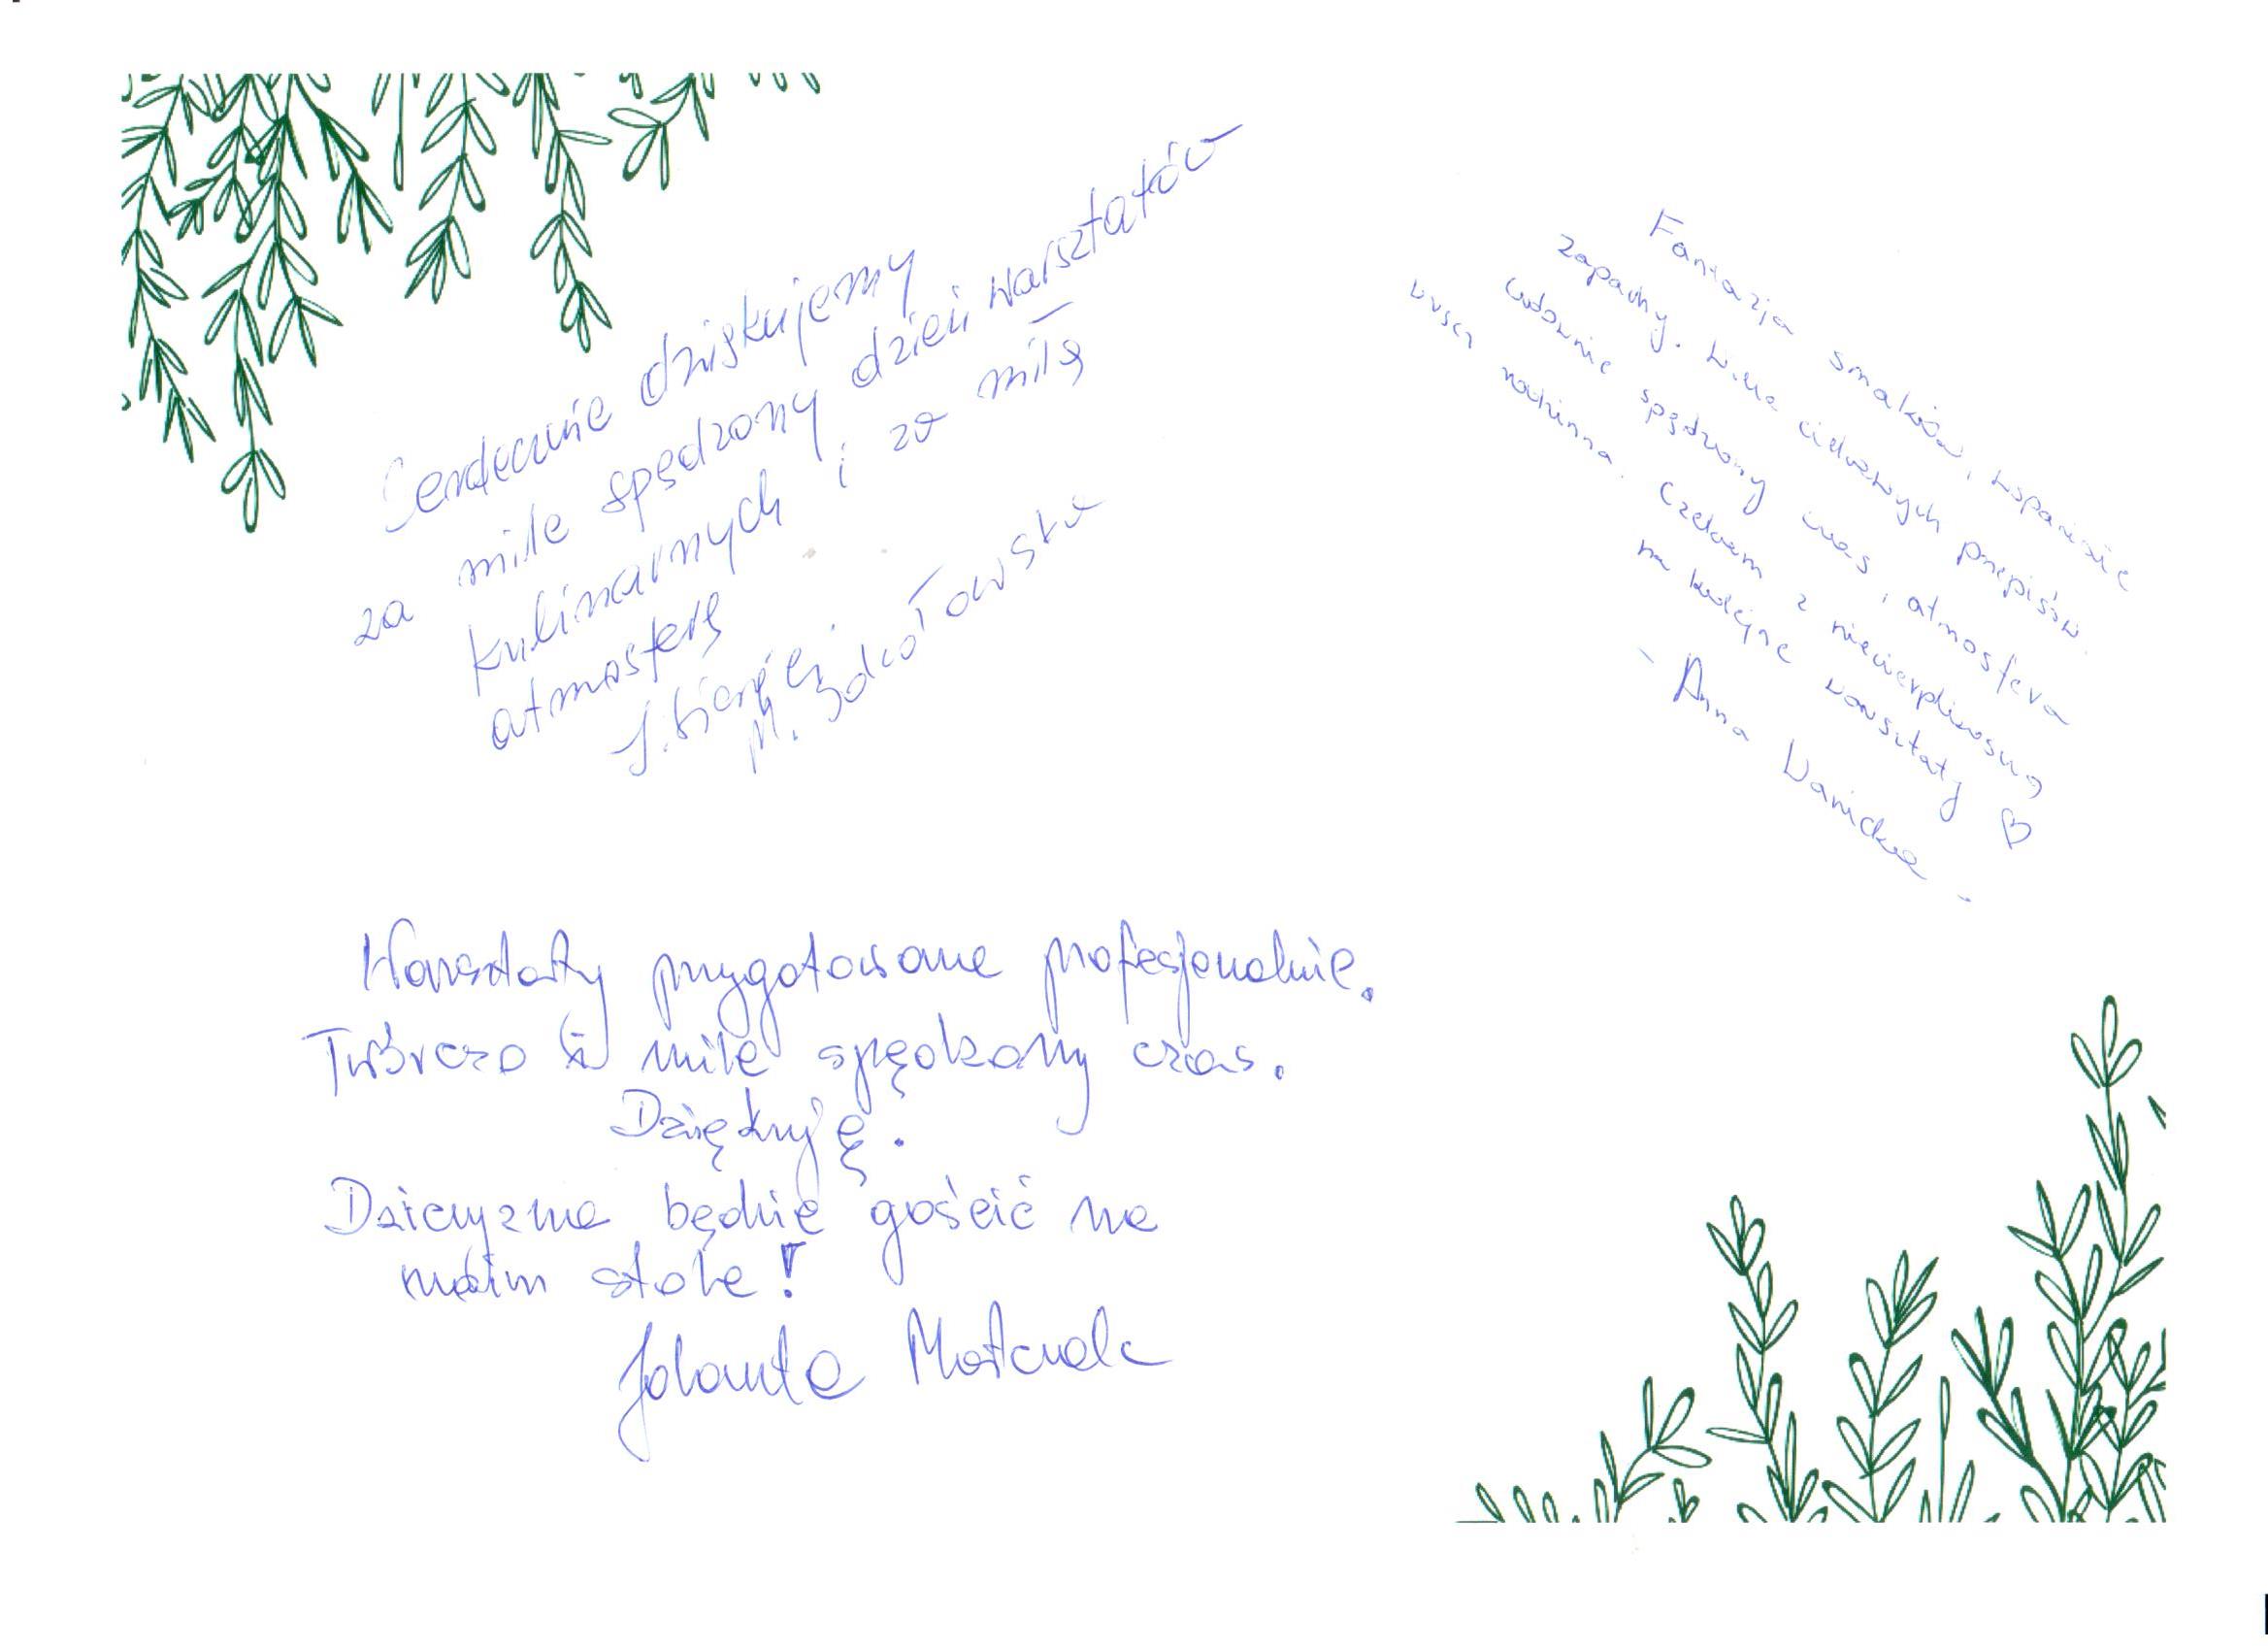 Serdecznie dziękujemy
za mile spędzony dzień warsztatów
kulinarnych i za miłą
atmosferę
M. Sokołowska
Fantazja smaków, wspaniałe
zapachy. Wiele ciekawych przepisów.
Cudownie spędzony czas, atmosfera
wręcz rodzinna. Czekam z niecierpliwością
na kolejne warsztaty ♡
- Anna Wanicka -
Warsztaty przygotowane profesjonalnie.
Twórczo i mile spędzony czas.
Dziękuję.
Dziczyzna będzie gościć na
moim stole!
Jolanta